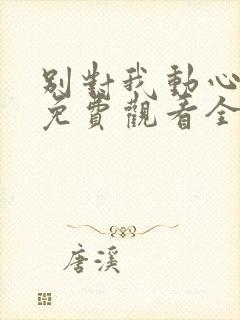 別對我動心
免費觀看全
唐溪